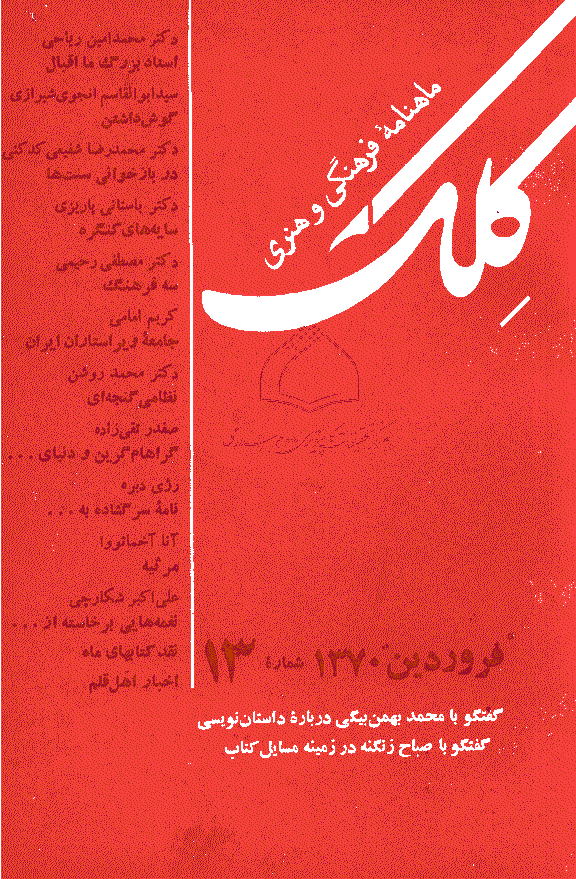 ماهنامهٔ فرهنگی و هنری
کِلک
دکتر محمدامین ریاحی
استاد بزرگ ما اقبال
سیدابوالقاسم انجوی‌شیرازی
گوش‌داشتن
دکتر محمدرضا شفیعی‌کدکنی
در بازخوانی سنت‌ها
دکتر باستانی پاریزی
سایه‌های کنگره
دکتر مصطفی رحیمی
سه فرهنگ
کریم امامی
جامعهٔ ویراستاران ایران
دکتر محمد روشن
نظامی گنجه‌ای
صفدر تقی‌زاده
گراهام گرین و دنیای ...
رژی دبره
نامهٔ سرگشاده به ...
آنا آخماتووا
مرثیه
علی‌اکبر شکارچی
نغمه‌هایی برخاسته از ...
نقد کتابهای ماه
اخبار اهل قلم
فروردین ۱۳۷۰ شمارهٔ ۱۳
گفتگو با محمد بهمن‌بیگی دربارهٔ داستان‌نویسی
گفتگو با صباح زنگنه در زمینه مسایل کتاب